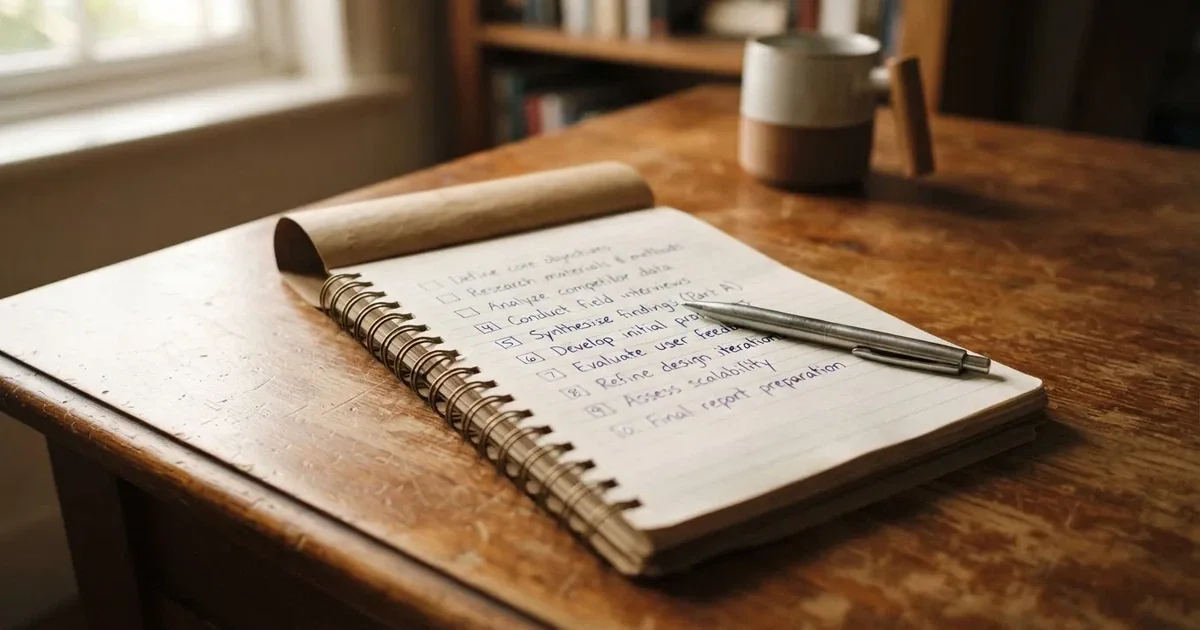 Define core objectives
Research materials & methods
Analyze competitor data
4 Conduct field interviews
5 Synthesize findings (Part A)
6 Develop initial pro
7 Evaluate user feedb
8 Refine design iteration
9 Assess scalability
10. Final report preparation